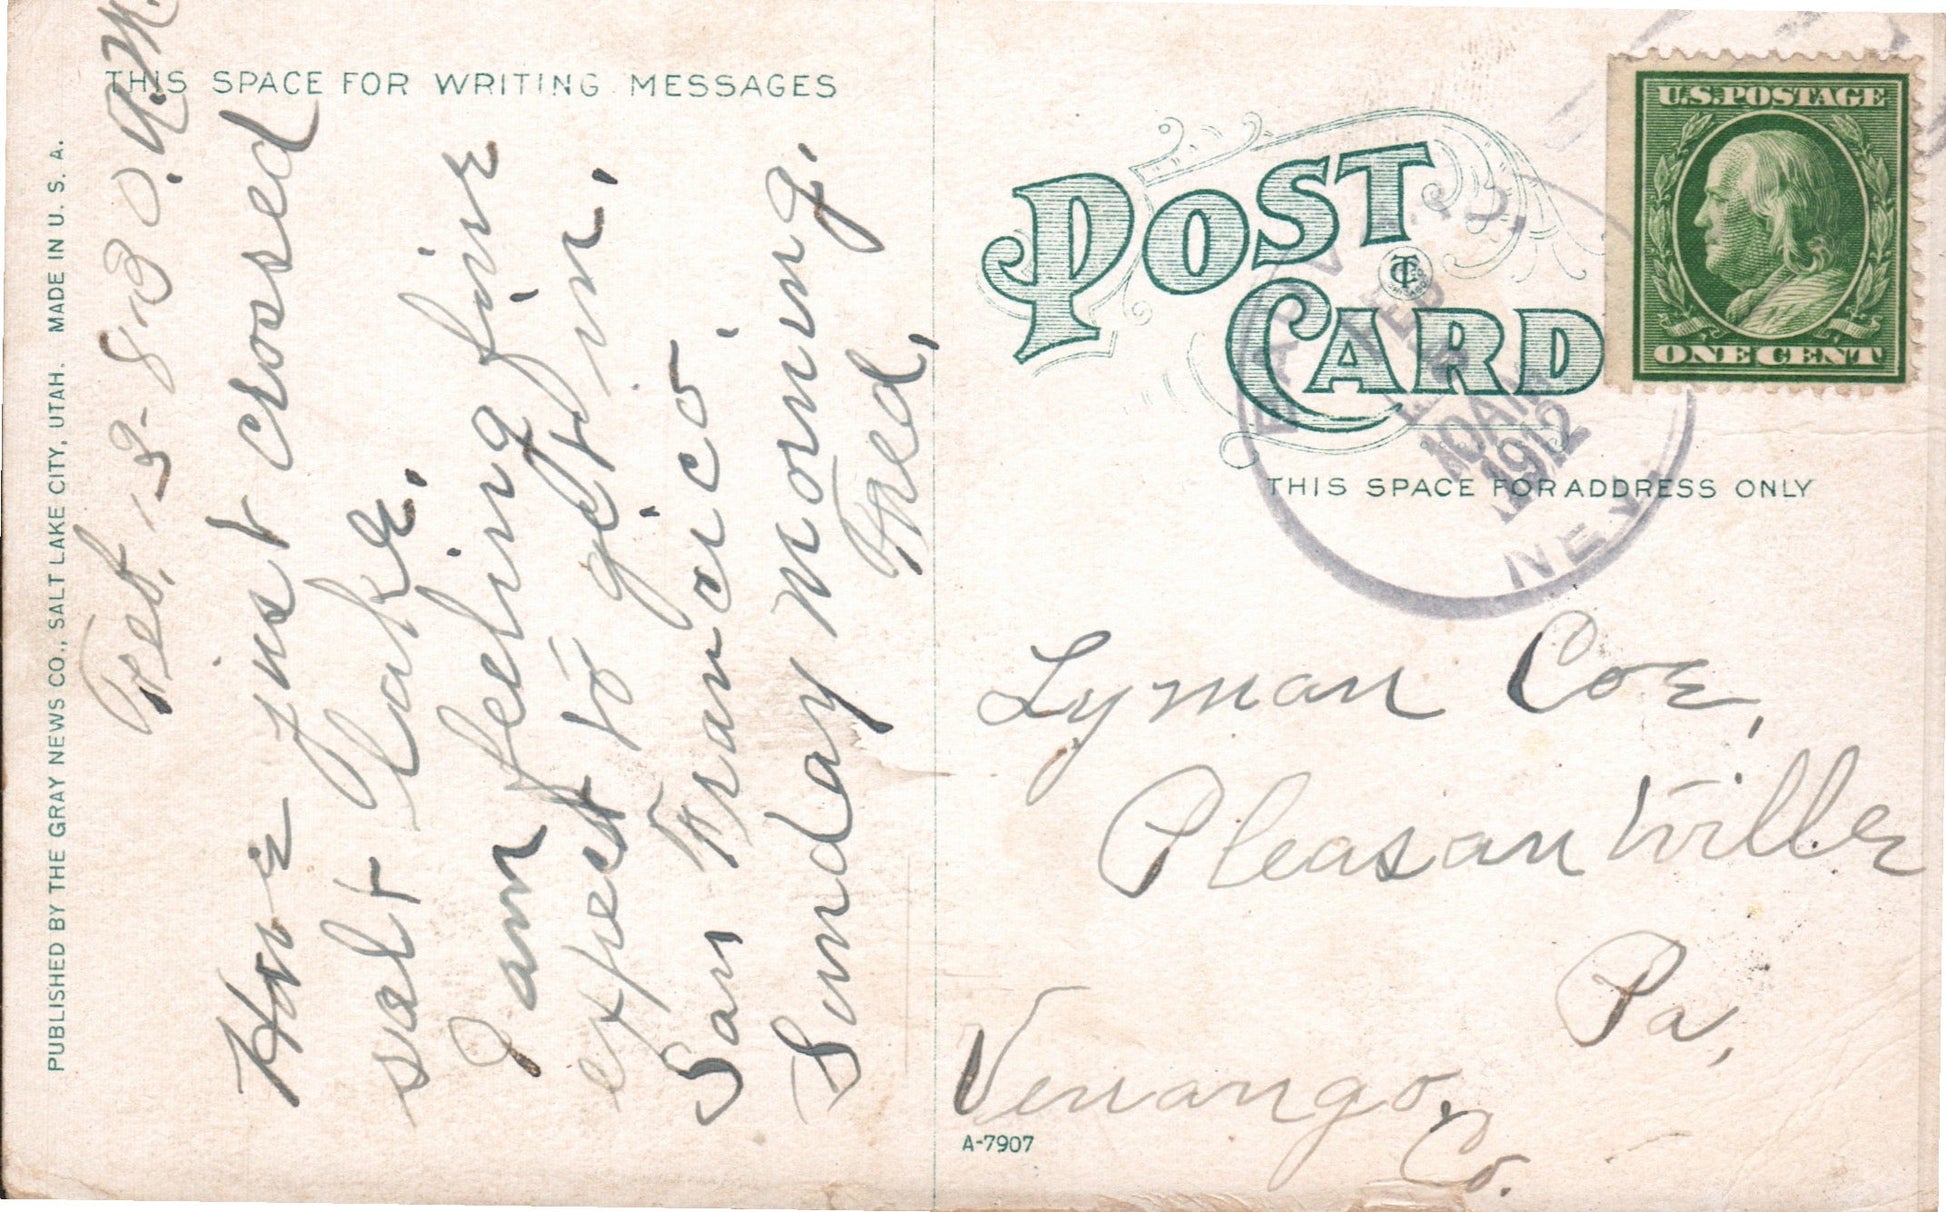 THIS SPACE FOR WRITING MESSAGES
PUBLISHED BY THE GRAY NEWS CO., SALT LAKE CITY, UTAH. MADE IN U. S. A.
Feb. 13-8:30 A.M.
Have just crossed
salt lake.
I am feeling fine
expect to get in
San Francico.
Sunday Morning.
Fred,
POST
CARD
THIS SPACE FOR ADDRESS ONLY
U.S. POSTAGE
ONE CENT
FEB
10AM
1912
NEV.
Lyman Coe,
Pleasantville
Pa,
Venango,
Co.
A-7907